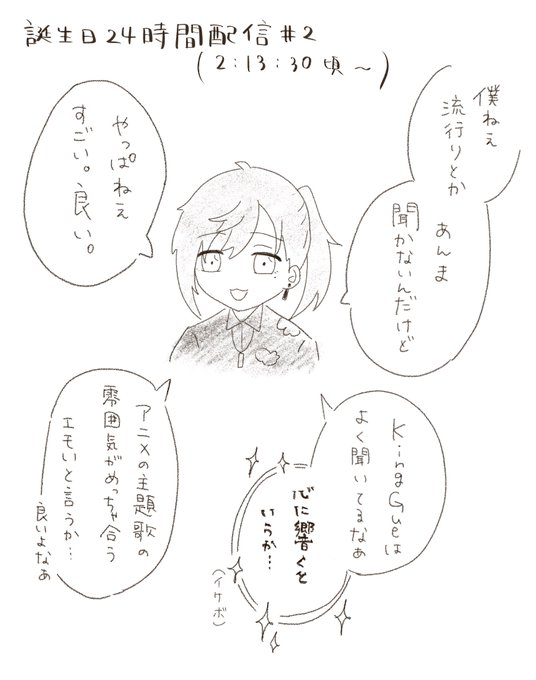 誕生日24時間配信#2
(2:13:30頃～)
僕ねぇ
流行りとか
あんま
聞かないんだけど
やっぱねぇ
すごい。良い。
KingGueは
よく聞いてるなぁ
心に響くと
いうか…
(イケボ)
アニメの主題歌の
雰囲気がめっちゃ合う
エモいと言うか…
良いよなぁ